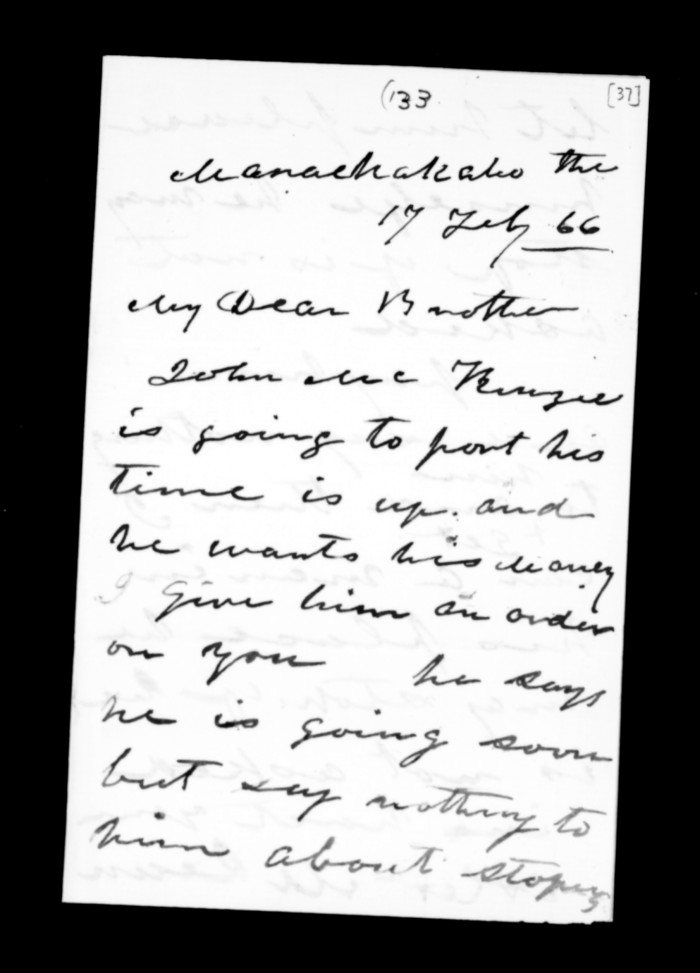 (133
[37]
Manaehakaho the
17 Feby 66
My Dear Brother
John Mc Kenzie
is going to port his
time is up. and
he wants his Money
I Give him an order
on you he says
he is going soon
but say nothing to
him about stoping